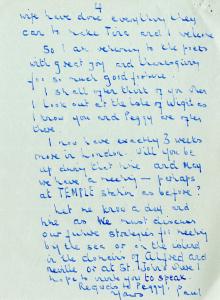 4
wife have done everything they
can to make Tina and I welcome
So I am returning to the poets
with great joy and thanksgiving
for so much good fortune.
I shall often think of you when
I look out at the Isle of Wight as
I know you and Peggy are often
there.
I now have exactly 3 weeks
more in London. Will you be
up during that time and may
we have a meeting — perhaps
at TEMPLE station as before?
Let me know a day and
time as we must discuss
our future strategies for meeting
by the sea or on the island
in the domains of Alfred and
neville or at St. where I
hope I want you to speak.
Regards to Peggy,
Yours Paul